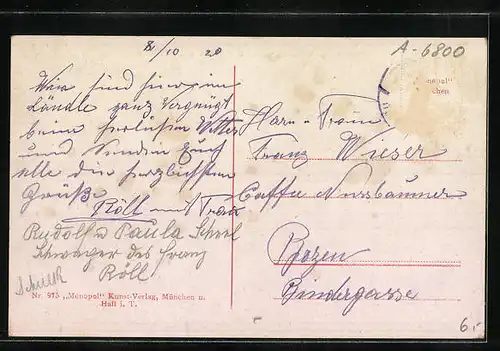 8/10 20
A-6800
Wir sind hier im
Ländle ganz vergnügt
beim herlichen Wetter
und senden Euch
alle die herzlichsten
Grüße
Röll mit Frau
Rudolf u Paula
Schwager des Franz
Röll
Herrn u. Frau
Franz Wieser
Caffee Nussbaumer
Bozen
Bindergasse
Nr. 975 „Monopol" Kunst-Verlag, München u.
Hall i. T.
6.-